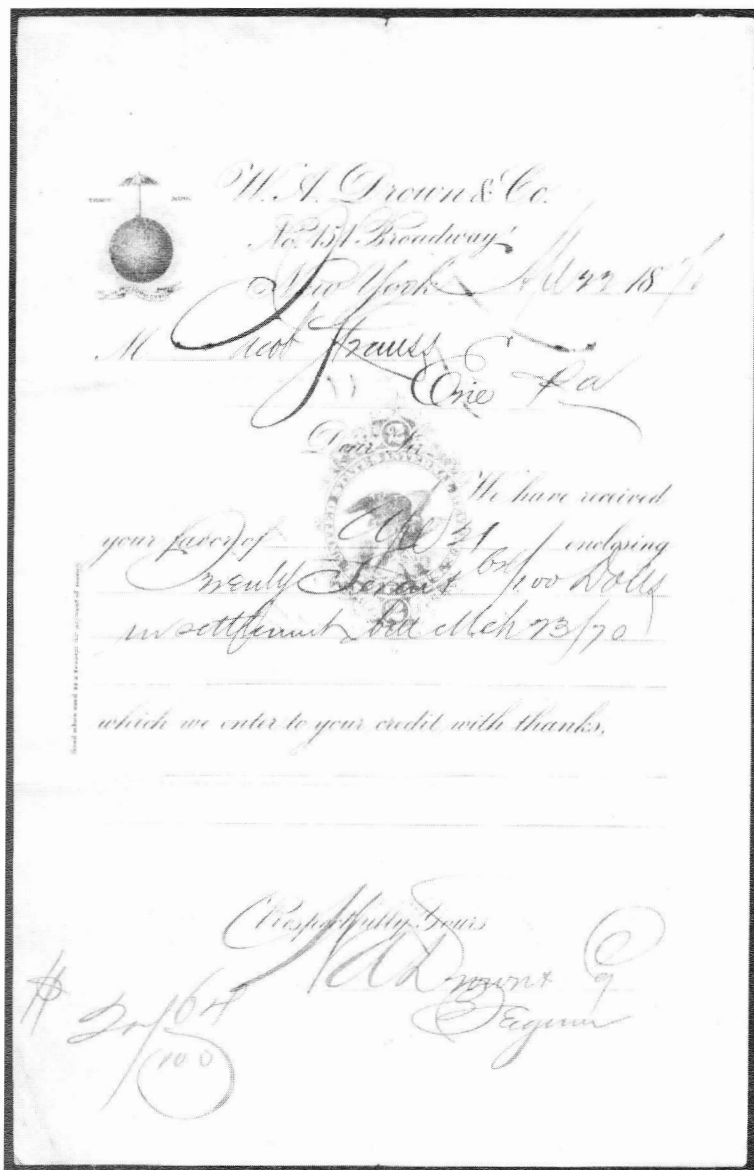 W. A. Drown & Co.
No. 451 Broadway
New York 22 18
M Jacob Strauss
Erie Pa
Dear Sir
We have received
your favor of 21 enclosing
Twenty Seven & 64/100 Dolls
in settlement bill Mch 23/70
which we enter to your credit with thanks,
Respectfully Yours
W A Drown & Co
$ 27 64/100